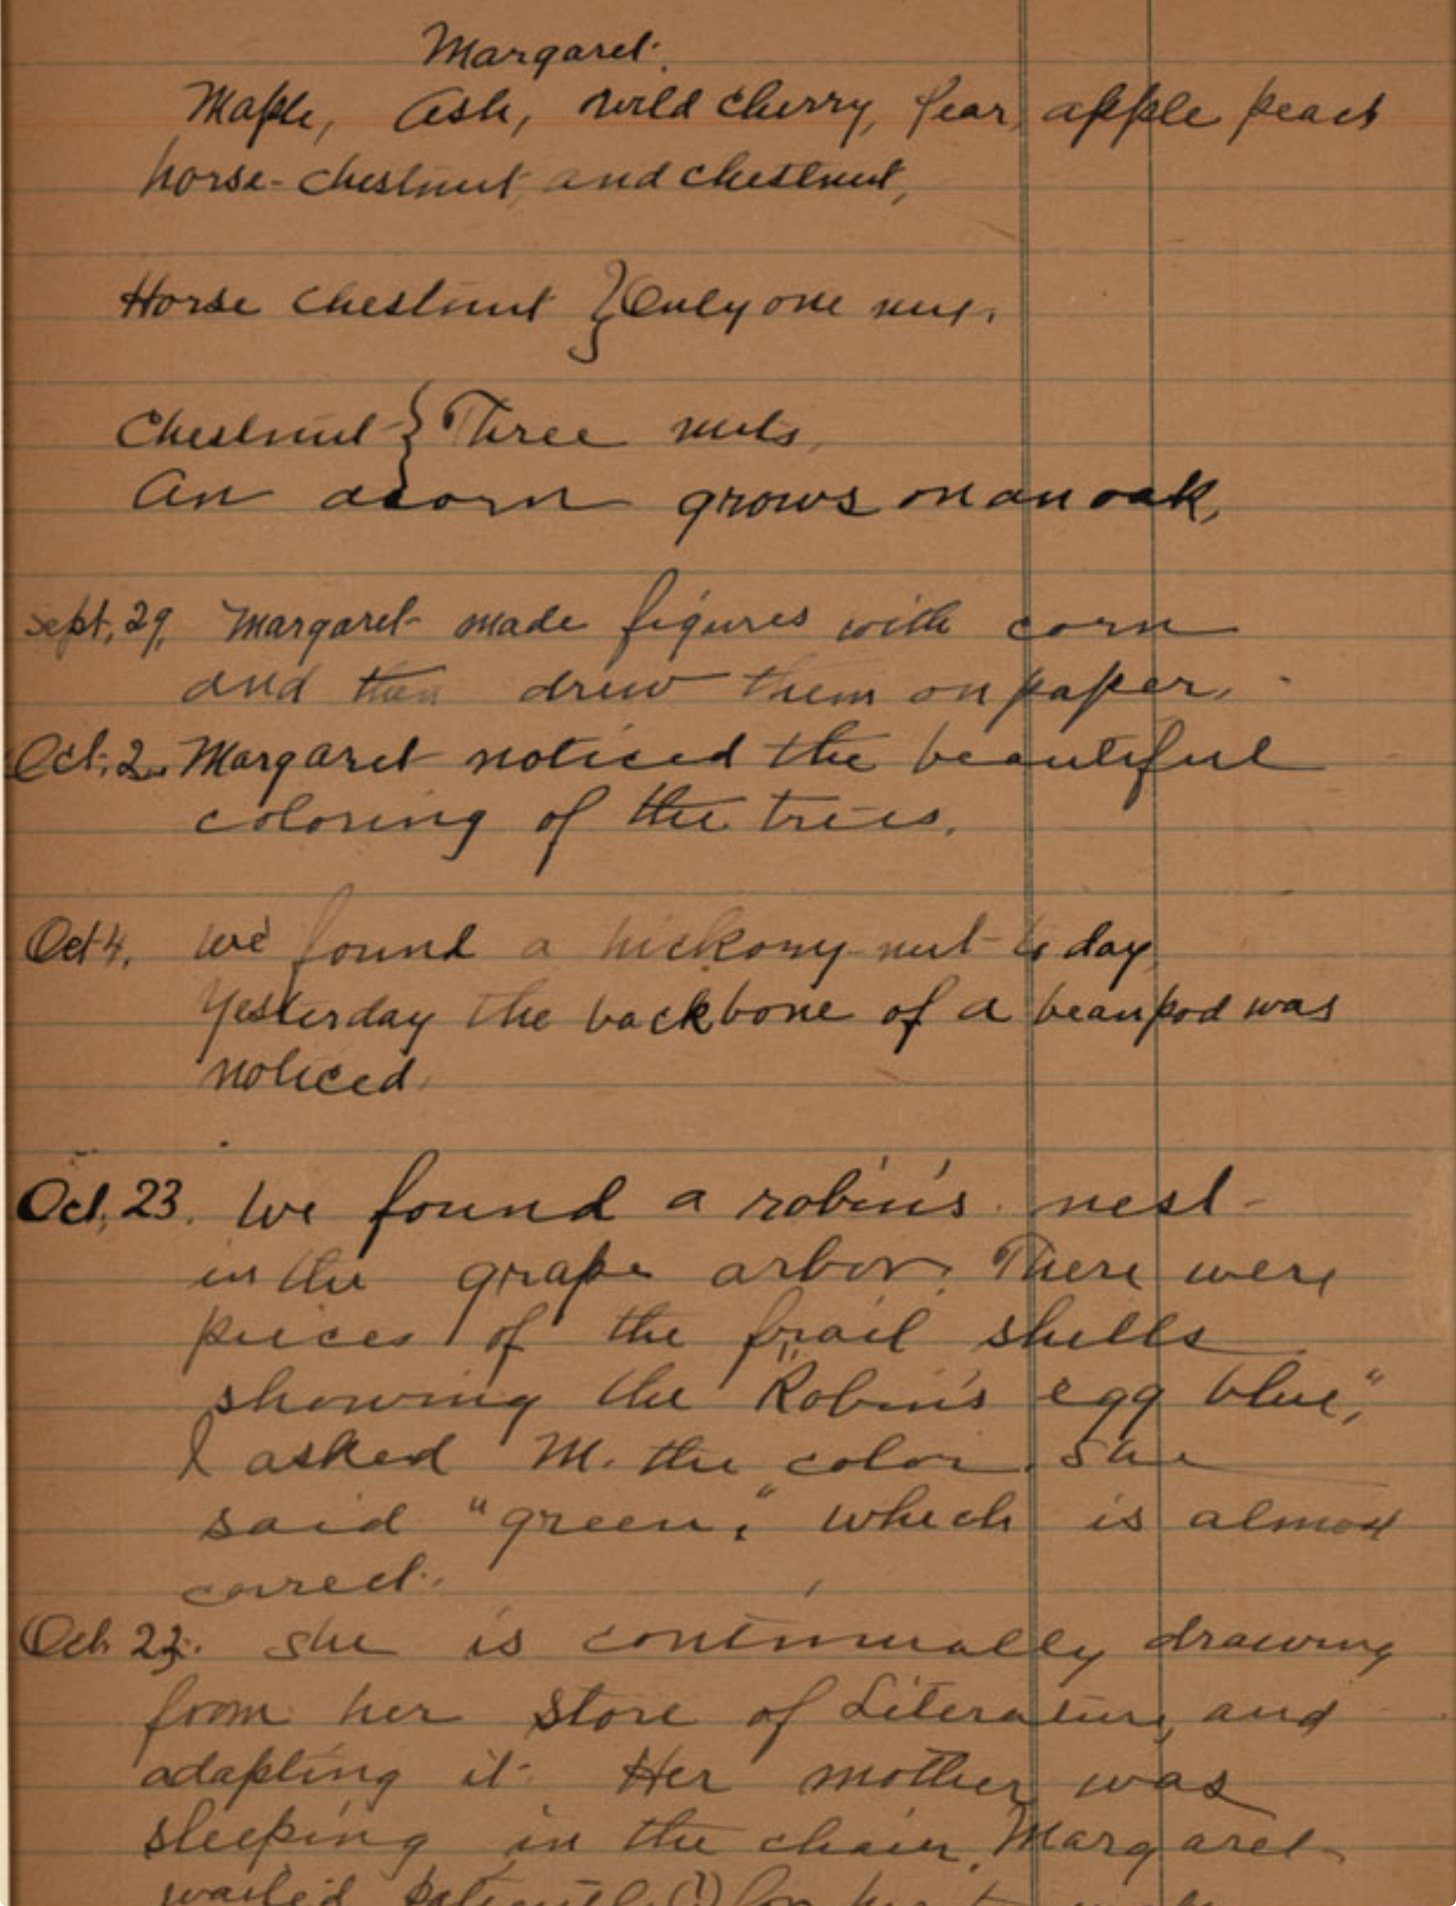 Margaret.
Maple, Ash, wild cherry, pear, apple peach
horse-chestnut, and chestnut,
Horse Chestnut } Only one nut.
Chestnut - } Three nuts,
An acorn grows on an oak,
Sept, 29, Margaret made figures with corn
and then drew them on paper.
Oct. 2. Margaret noticed the beautiful
coloring of the trees.
Oct 4. We found a hickory nut to day,
Yesterday the backbone of a beanpod was
noticed.
Oct, 23. We found a robin's nest
in the grape arbor. There were
pieces of the frail shells
showing the "Robin's egg blue,"
I asked M. the color. She
said "green," which is almost
correct.
Oct. 23. She is continually drawing
from her store of Literature, and
adapting it. Her mother was
sleeping in the chair. Margaret
waited patiently (?) for her to